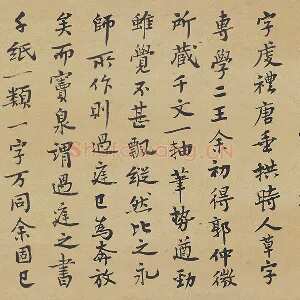 字虔禮唐垂拱時人草字
專學二王余初得郭仲微
所藏千文一軸筆勢遒勁
雖覺不甚飄縱然比之永
師所作則過庭已為奔放
矣而竇泉謂過庭之書
千紙一類一字萬同余固已